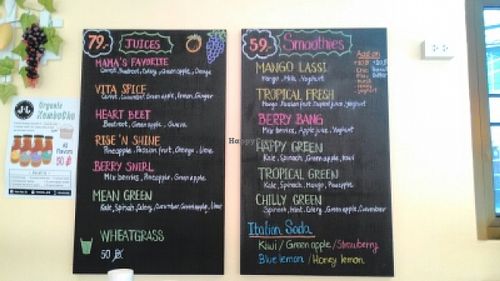 Organic
Kombucha
All
Flavors
50 ฿
79.- JUICES
MAMA'S FAVORITE
Carrot, Beetroot, Celery, Green apple, Orange
VITA SPICE
Carrot, Cucumber, Green apple, Lemon, Ginger
HEART BEET
Beetroot, Green apple, Guava
RISE 'N SHINE
Pineapple, Passion fruit, Orange, Lime
BERRY SWIRL
Mix berries, Pineapple, Green apple
MEAN GREEN
Kale, Spinach, Celery, Cucumber, Green apple, Lime
WHEATGRASS
50 ฿
59.- Smoothies
Add on
MANGO LASSI
Mango, Milk, Yoghurt
TROPICAL FRESH
Mango, Passion fruit, Yoghurt
BERRY BANG
Mix berries, Apple juice, Yoghurt
HAPPY GREEN
Kale, Spinach, Green apple, Kiwi
TROPICAL GREEN
Kale, Spinach, Mango, Pineapple
CHILLY GREEN
Spinach, Mint, Celery, Green apple, Cucumber
Italian Soda
Kiwi / Green apple / Strawberry
Blue lemon / Honey lemon